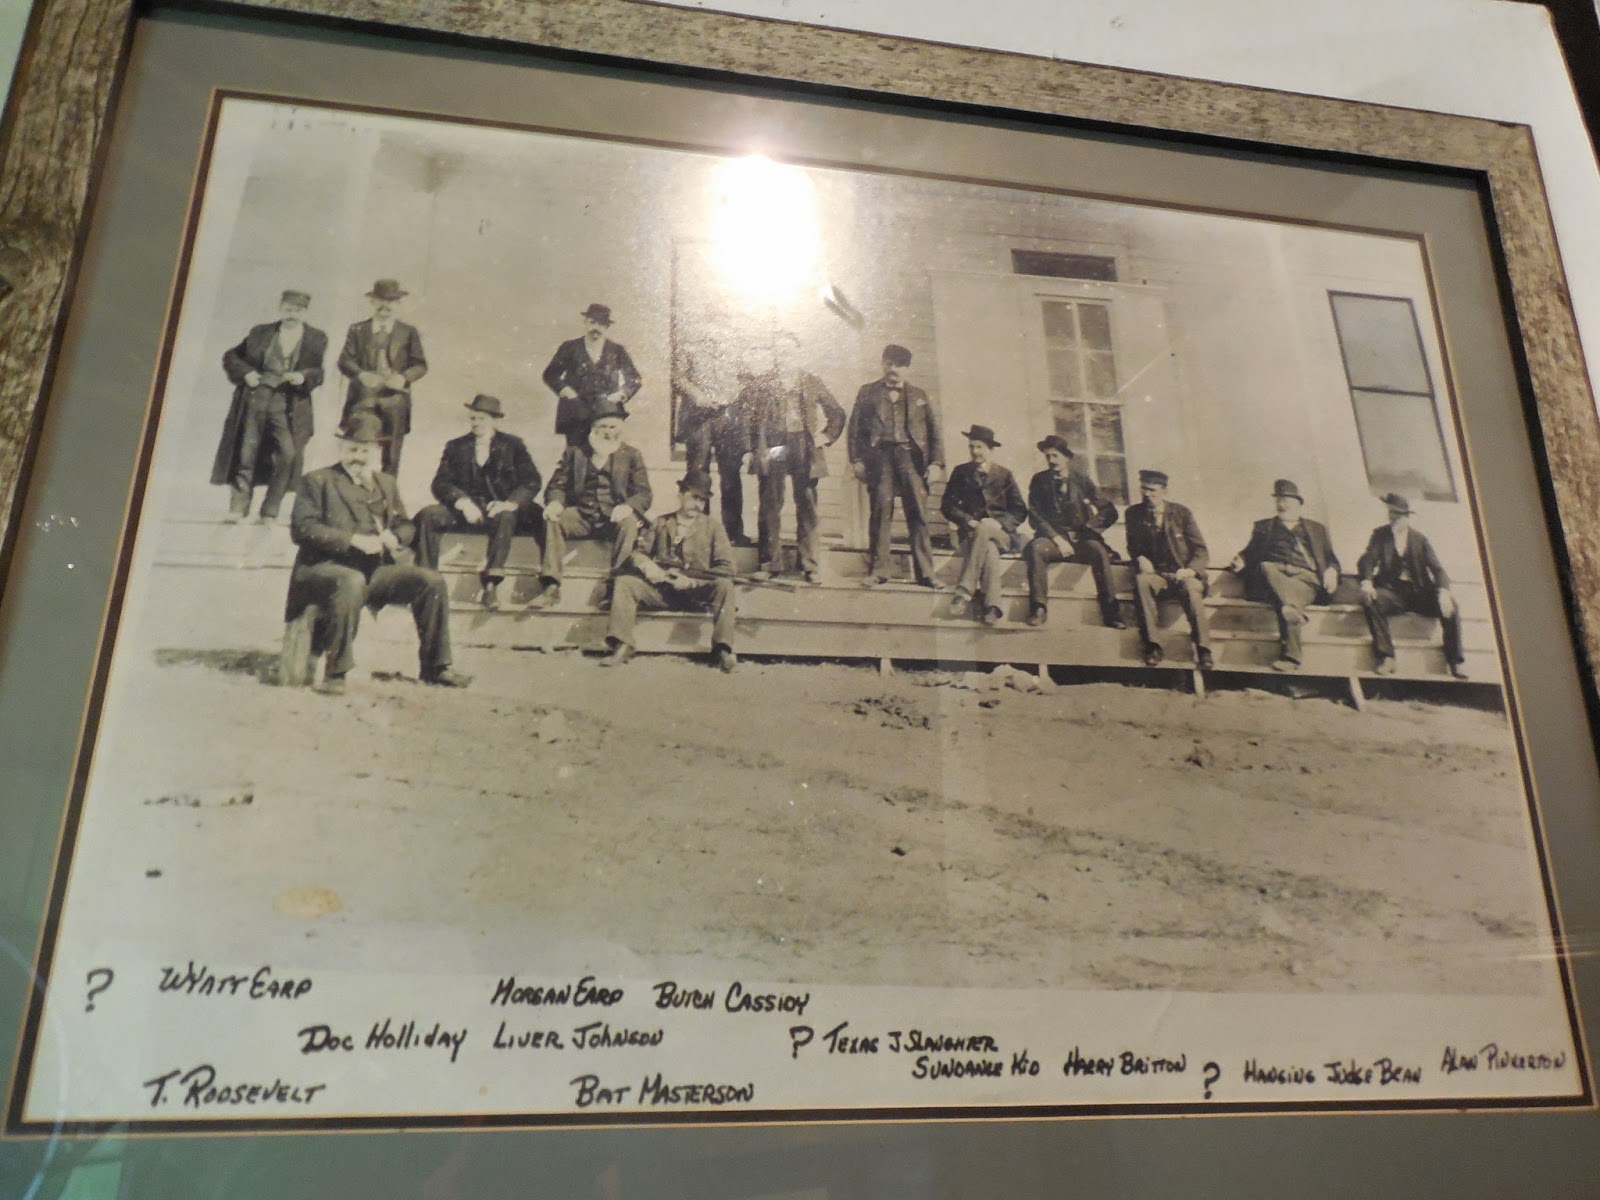 ? WYATT EARP MORGAN EARP BUTCH CASSIDY
DOC HOLLIDAY LIVER JOHNSON ? TEXAS J SLAUGHTER
SUNDANCE KID HARRY BRITTON ? HANGING JUDGE BEAN ALAN PINKERTON
T. ROOSEVELT BAT MASTERSON